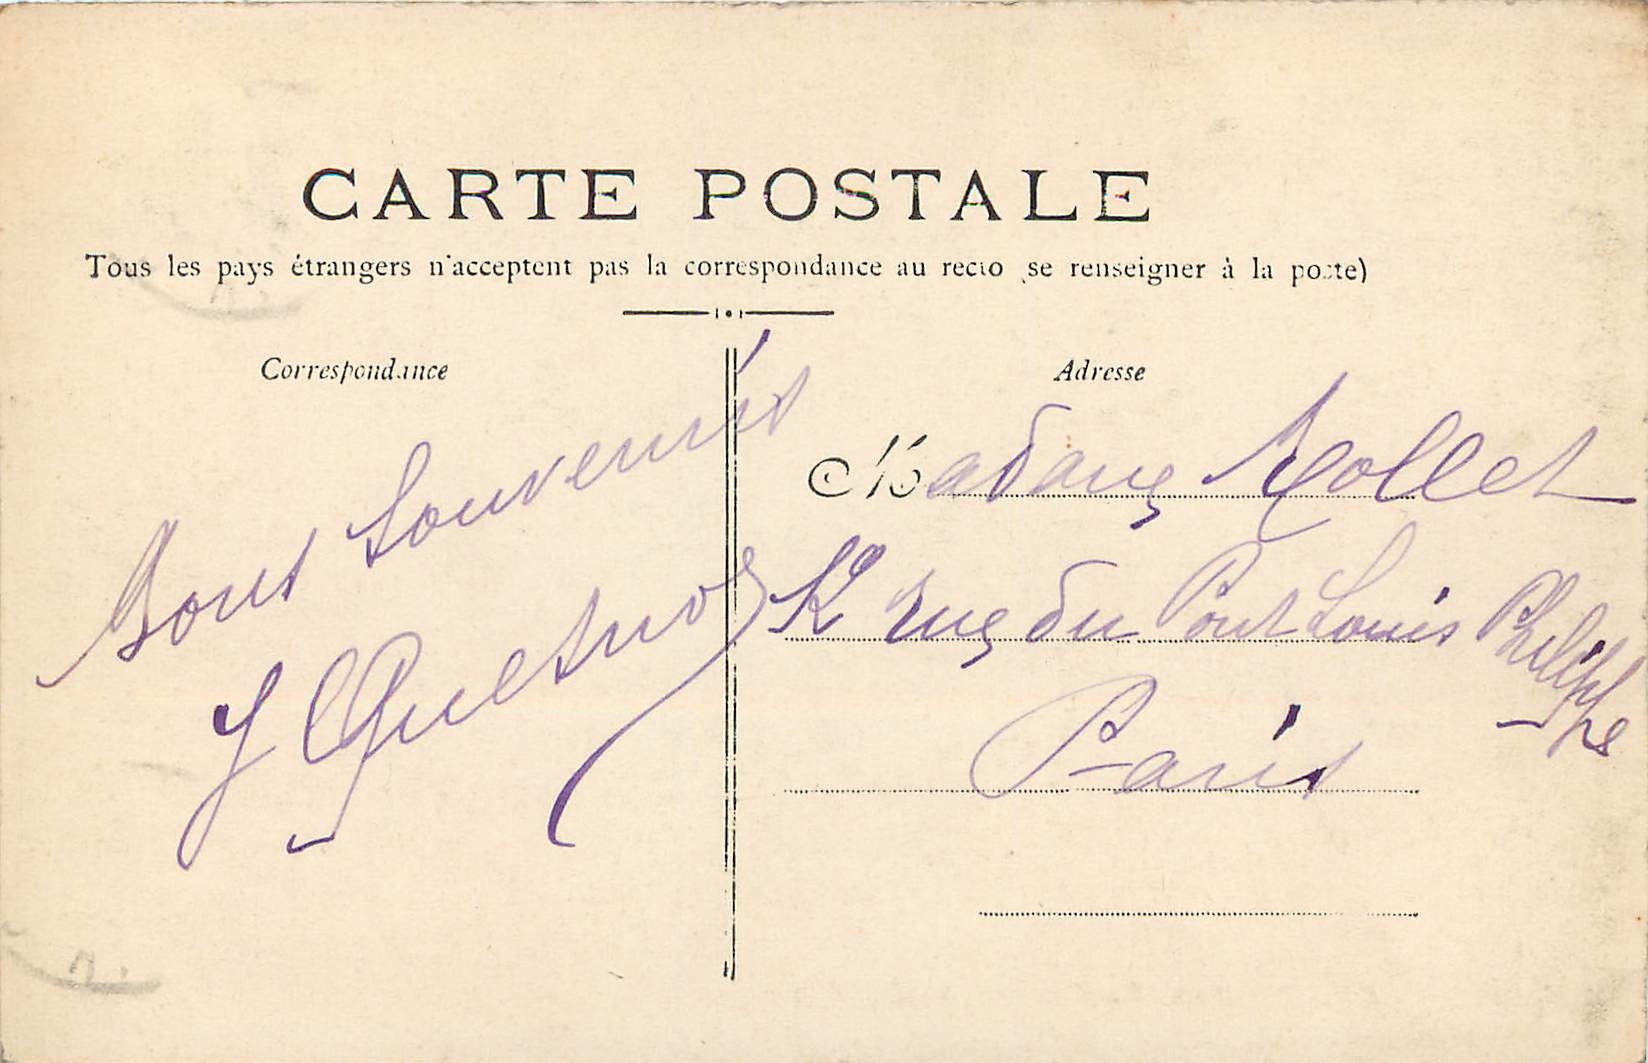 CARTE POSTALE
Tous les pays étrangers n'acceptent pas la correspondance au recto (se renseigner à la poste)
Correspondance
Bons Souvenirs
J Quesnot
Adresse
Madame Rollet
rue du Pont Louis Philippe
Paris